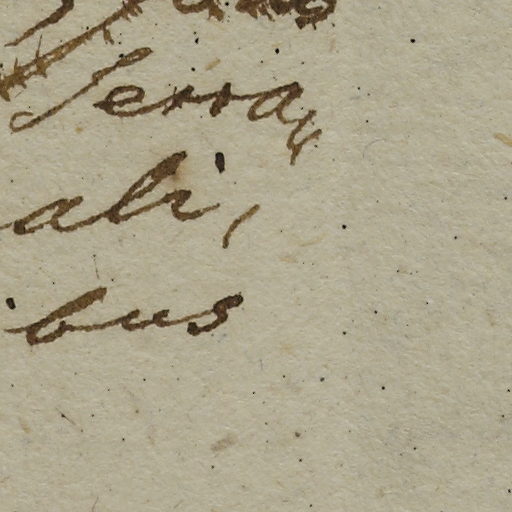 Serra
ali,
bus